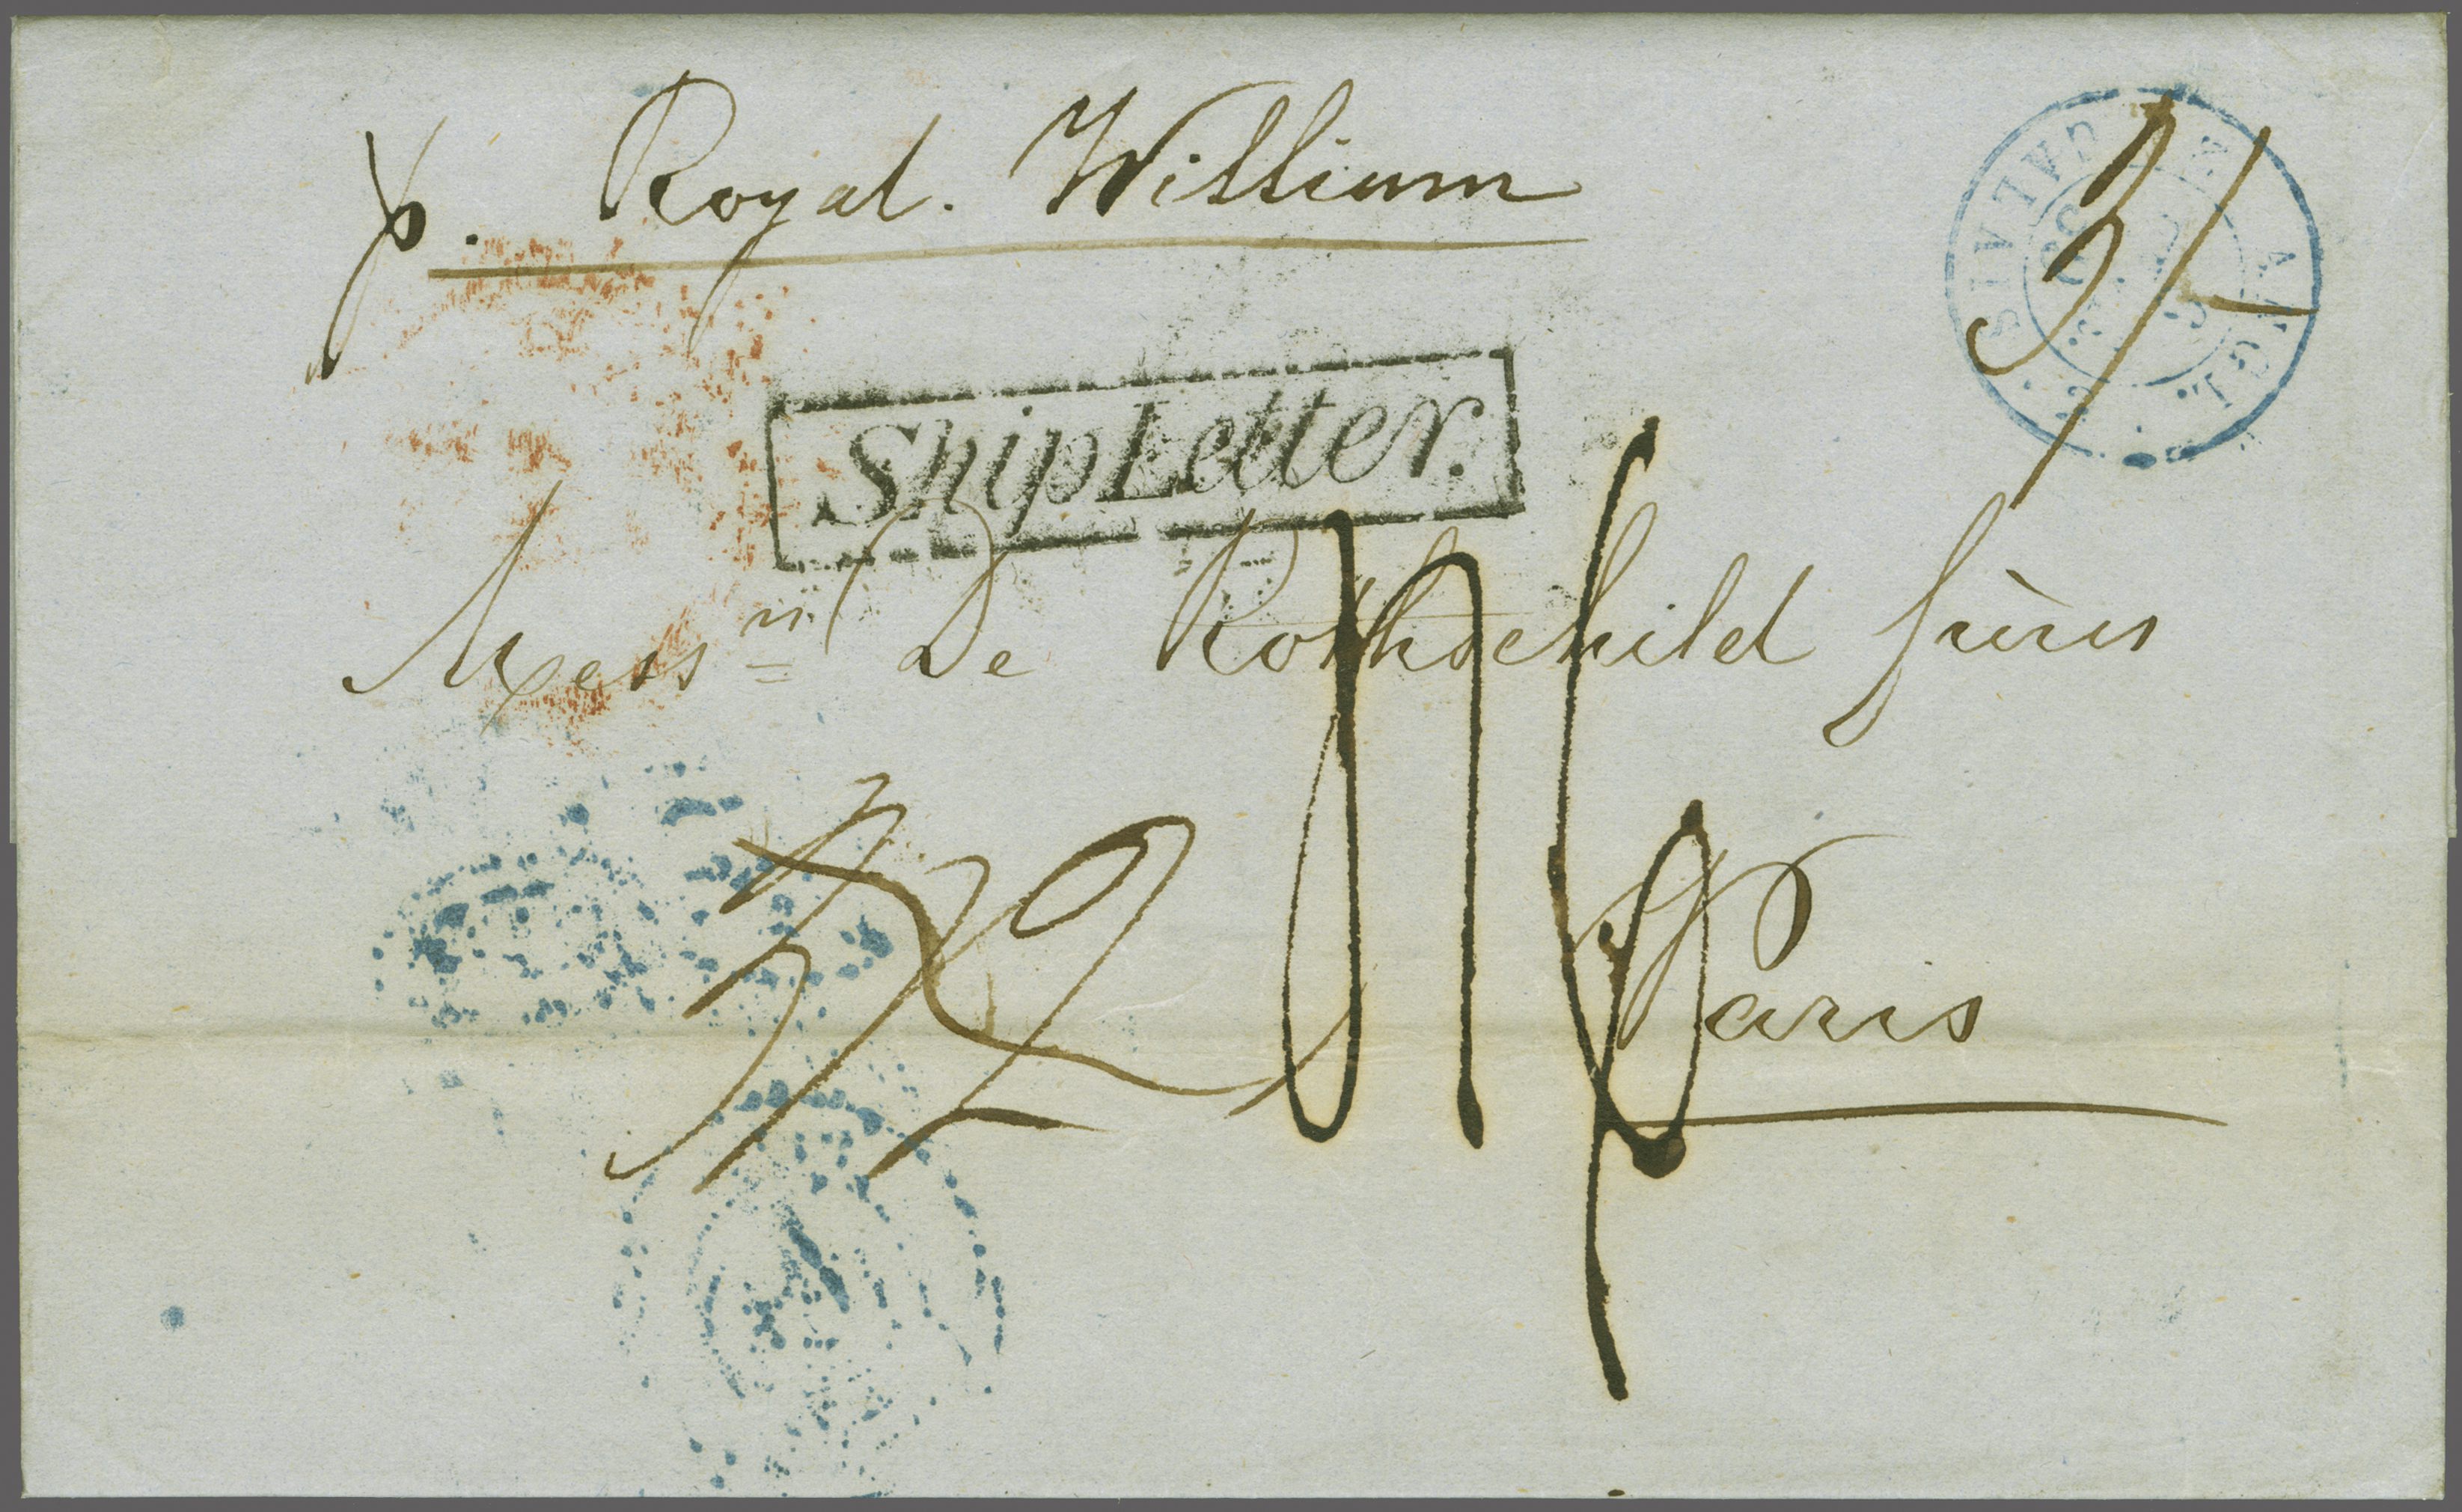 p. Royal. William
Ship Letter.
Mess.rs De Rothschild frères
Paris
ANGL.
CALAIS